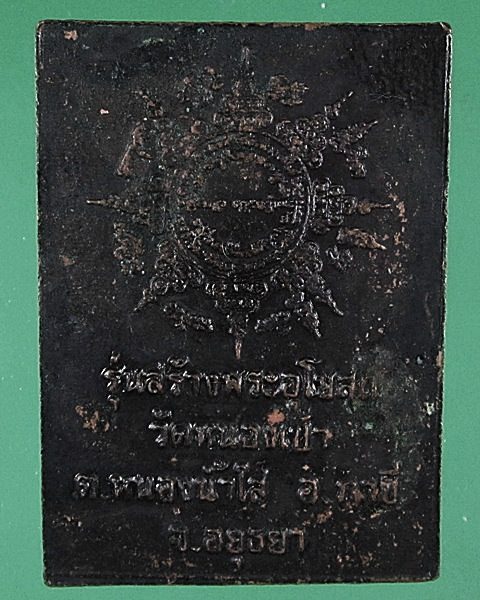 รุ่นสร้างพระอุโบสถ
วัดหนองเป้า
ต.หนองน้ำใส อ.ภาชี
จ.อยุธยา